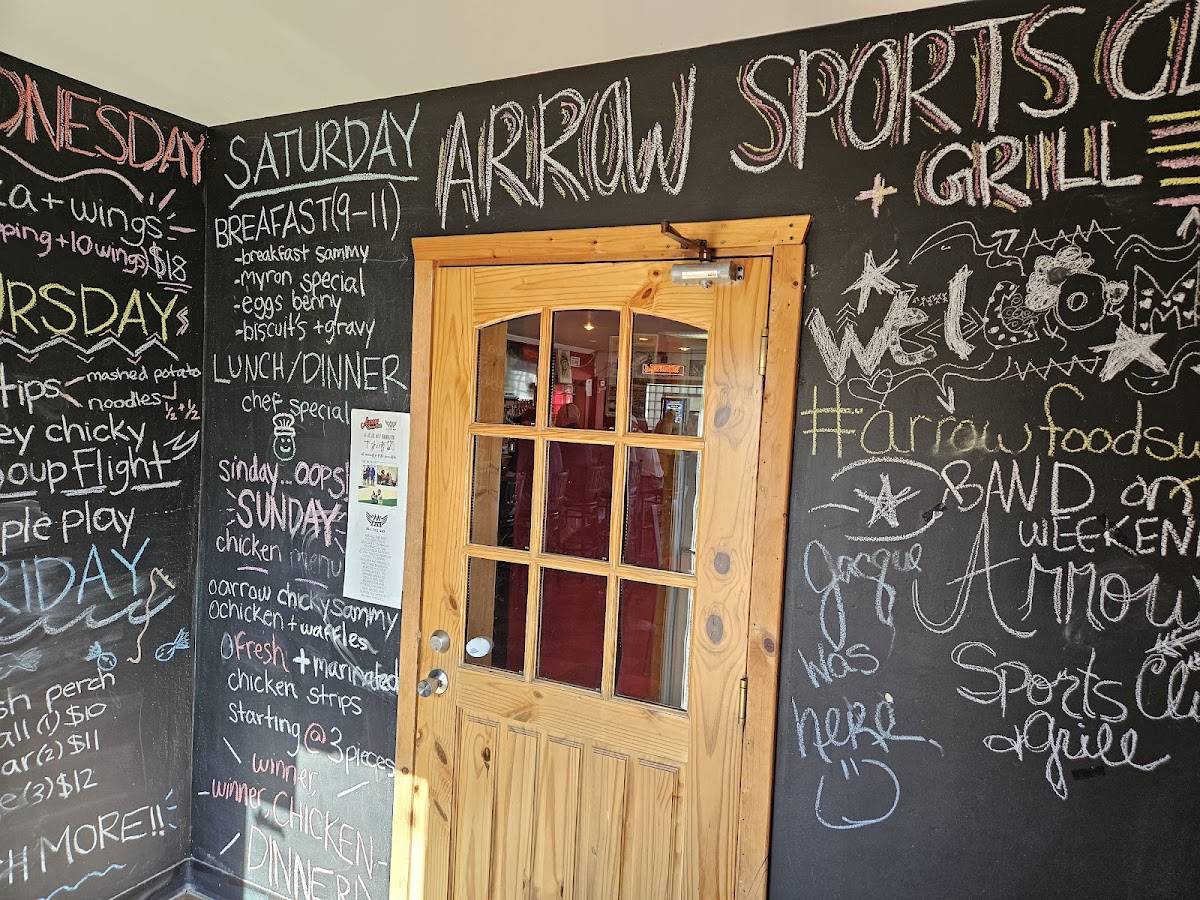 ONESDAY
+ wings
pping + 10 wings) $18
URSDAY
tips
mashed potato
noodles
½ + ½
ey chicky
oup Flight
ple play
RIDAY
sh perch
all (1) $10
ar (2) $11
e (3) $12
H MORE!!
SATURDAY
BREAFAST (9-11)
-breakfast sammy
-myron special
-eggs benny
-biscuit's + gravy
LUNCH/DINNER
chef special
sinday...oops!
SUNDAY
chicken menu
o arrow chicky sammy
o chicken + waffles
o Fresh + marinated
chicken strips
starting @ 3 pieces
winner,
-winner, CHICKEN-
DINNER
ARROW SPORTS CL
+ GRILL
WelcOM
#arrowfoodsu
BAND on
WEEKEN
Jacque
was
here
Arrow
Sports Clu
+ Grill